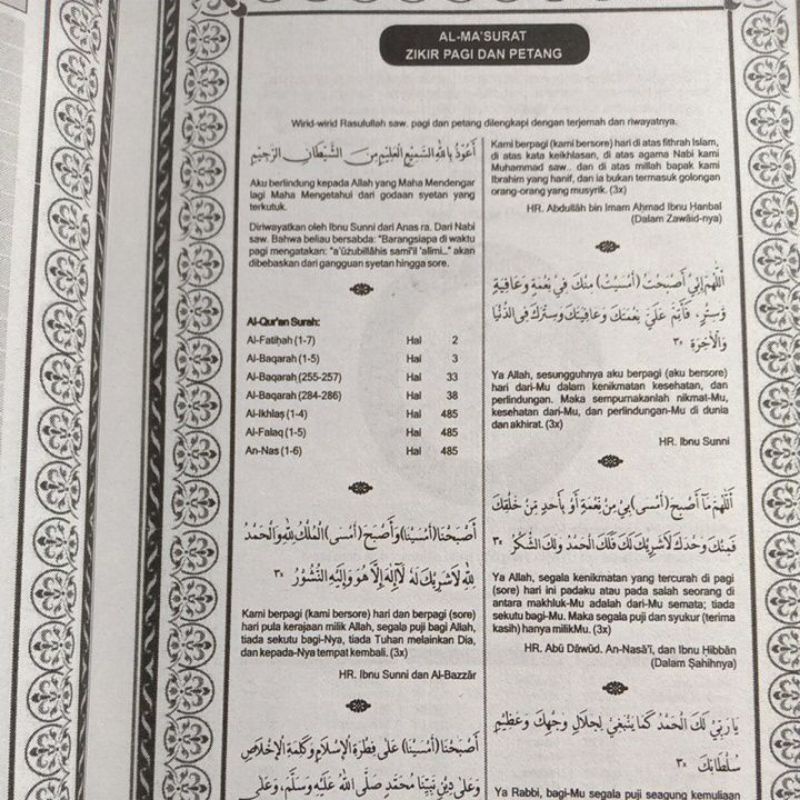 AL-MA'SURAT
ZIKIR PAGI DAN PETANG
Wirid-wirid Rasulullah saw. pagi dan petang dilengkapi dengan terjemah dan riwayatnya.
أَعُوْذُ بِاللهِ السَّمِيْعِ الْعَلِيْمِ مِنَ الشَّيْطَانِ الرَّجِيْمِ
Aku berlindung kepada Allah yang Maha Mendengar
lagi Maha Mengetahui dari godaan syetan yang
terkutuk.
Diriwayatkan oleh Ibnu Sunni dari Anas ra. Dari Nabi
saw. Bahwa beliau bersabda: "Barangsiapa di waktu
pagi mengatakan: "a'ūżubillāhis samī'il 'alīmi..." akan
dibebaskan dari gangguan syetan hingga sore.
Al-Qur'an Surah:
Al-Fatiḥah (1-7) Hal 2
Al-Baqarah (1-5) Hal 3
Al-Baqarah (255-257) Hal 33
Al-Baqarah (284-286) Hal 38
Al-Ikhlaṣ (1-4) Hal 485
Al-Falaq (1-5) Hal 485
An-Nas (1-6) Hal 485
أَصْبَحْنَا (أَمْسَيْنَا) وَأَصْبَحَ (أَمْسَى) الْمُلْكُ لِلّٰهِ وَالْحَمْدُ
لِلّٰهِ لَاشَرِيْكَ لَهُ لَآ إِلٰهَ إِلَّا هُوَ وَإِلَيْهِ النُّشُوْرُ ٣×
Kami berpagi (kami bersore) hari dan berpagi (sore)
hari pula kerajaan milik Allah, segala puji bagi Allah,
tiada sekutu bagi-Nya, tiada Tuhan melainkan Dia,
dan kepada-Nya tempat kembali. (3x)
HR. Ibnu Sunni dan Al-Bazzār
أَصْبَحْنَا (أَمْسَيْنَا) عَلَى فِطْرَةِ الْإِسْلَامِ وَكَلِمَةِ الْإِخْلَاصِ
وَعَلَى دِيْنِ نَبِيِّنَا مُحَمَّدٍ صَلَّى اللهُ عَلَيْهِ وَسَلَّمَ، وَعَلَى
Kami berpagi (kami bersore) hari di atas fithrah Islam,
di atas kata keikhlasan, di atas agama Nabi kami
Muhammad saw.. dan di atas millah bapak kami
Ibrahim yang hanif, dan ia bukan termasuk golongan
orang-orang yang musyrik. (3x)
HR. Abdullāh bin Imam Aḥmad Ibnu Hanbal
(Dalam Zawāid-nya)
اَللّٰهُمَّ إِنِّيْ أَصْبَحْتُ (أَمْسَيْتُ) مِنْكَ فِيْ نِعْمَةٍ وَعَافِيَةٍ
وَسِتْرٍ، فَأَتِمَّ عَلَيَّ نِعْمَتَكَ وَعَافِيَتَكَ وَسِتْرَكَ فِى الدُّنْيَا
وَالْآخِرَةِ ٣×
Ya Allah, sesungguhnya aku berpagi (aku bersore)
hari dari-Mu dalam kenikmatan kesehatan, dan
perlindungan. Maka sempurnakanlah nikmat-Mu,
kesehatan dari-Mu, dan perlindungan-Mu di dunia
dan akhirat. (3x)
HR. Ibnu Sunni
اَللّٰهُمَّ مَا أَصْبَحَ (أَمْسَى) بِيْ مِنْ نِعْمَةٍ أَوْ بِأَحَدٍ مِنْ خَلْقِكَ
فَمِنْكَ وَحْدَكَ لَاشَرِيْكَ لَكَ فَلَكَ الْحَمْدُ وَلَكَ الشُّكْرُ ٣×
Ya Allah, segala kenikmatan yang tercurah di pagi
(sore) hari ini padaku atau pada salah seorang di
antara makhluk-Mu adalah dari-Mu semata; tiada
sekutu bagi-Mu. Maka segala puji dan syukur (terima
kasih) hanya milikMu. (3x)
HR. Abū Dāwūd. An-Nasā'ī, dan Ibnu Ḥibbān
(Dalam Ṣahihnya)
يَا رَبِّيْ لَكَ الْحَمْدُ كَمَا يَنْبَغِيْ لِجَلَالِ وَجْهِكَ وَعَظِيْمِ
سُلْطَانِكَ ٣×
Ya Rabbi, bagi-Mu segala puji seagung kemuliaan